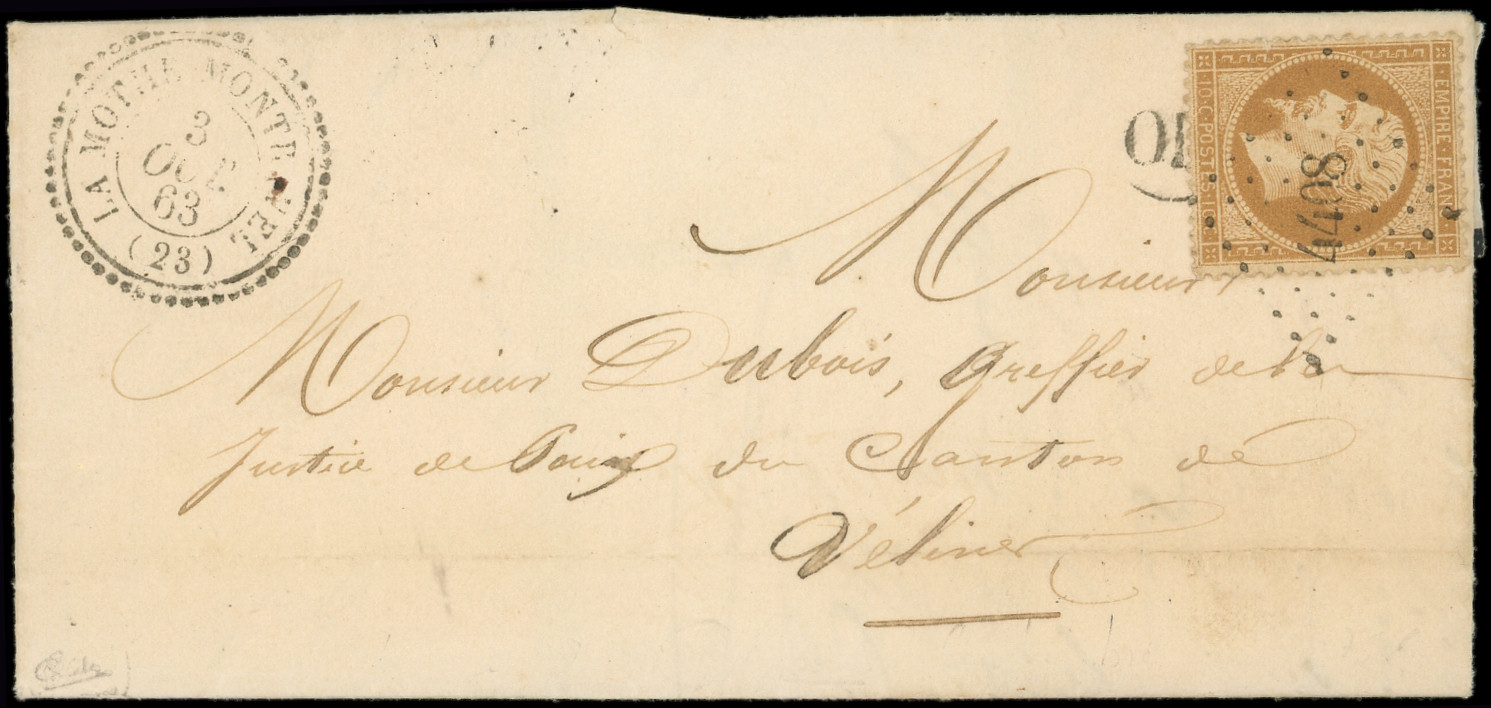 LA MOTHE MONTRAVEL
3
OCT
63
(23)
EMPIRE · FRANC
10 · C · POSTES · 10 · C
4408
OR
Monsieur
Monsieur Dubois, Greffier de la
Justice de Paix du Canton de
Vélines